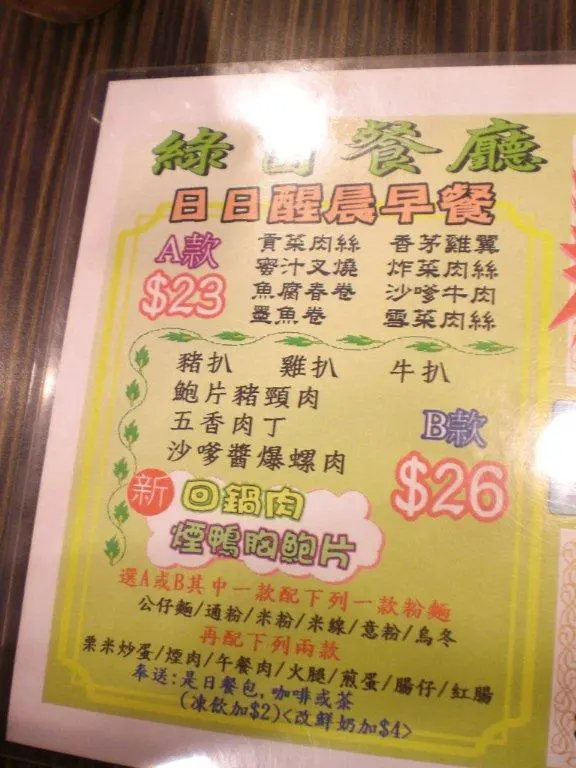 綠 餐廳
日日醒晨早餐
A款
$23
貢菜肉絲 香茅雞翼
蜜汁叉燒 炸菜肉絲
魚腐春卷 沙嗲牛肉
墨魚卷 雪菜肉絲
豬扒 雞扒 牛扒
鮑片豬頸肉
五香肉丁
沙嗲醬爆螺肉
B款
$26
新
回鍋肉
煙鴨胸鮑片
選A或B其中一款配下列一款粉麵
公仔麵/通粉/米粉/米線/意粉/烏冬
再配下列兩款
粟米炒蛋/煙肉/午餐肉/火腿/煎蛋/腸仔/紅腸
奉送:是日餐包,咖啡或茶
(凍飲加$2)<改鮮奶加$4>